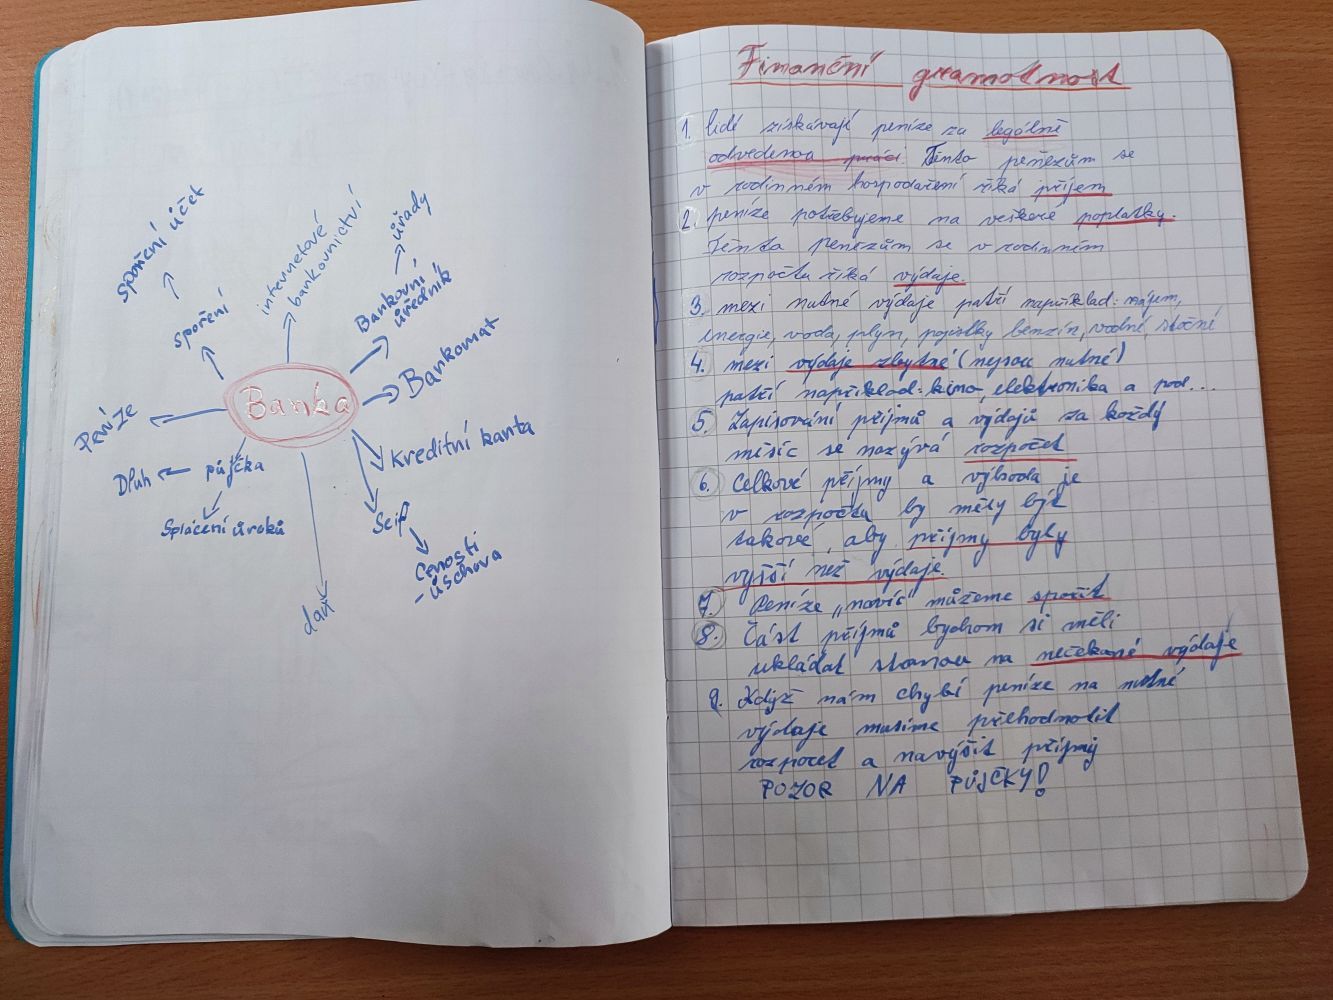 spoření úček
spoření
internetové
bankovnictví
úřady
Bankovní
úředník
Bankomat
Banka
Peníze
Dluh
půjčka
Splácení úroků
Kreditní karta
Seif
Cenosti
- úschova
daň
Finanční gramotnost
1. lidé získávají peníze za legálně
odvedenou práci Těmto penězům se
v rodinném hospodaření říká příjem
2. peníze potřebujeme na veškeré poplatky.
Těmto penezům se v rodinném
rozpočtu říká výdaje.
3. mezi nutné výdaje patří například: nájem,
energie, voda, plyn, pojistky benzín, vodné, stočné
4. mezi výdaje zbytné (nejsou nutné)
patří například: kino, elektronika a pod...
5. Zapisování příjmů a výdajů za každý
měsíc se nazývá rozpočet
6. Celkové příjmy a výhoda je
v rozpočtu by měly být
takové, aby příjmy byly
vyšší než výdaje.
7. Peníze „navíc" můžeme spořit
8. Část příjmů bychom si měli
ukládat stranou na nečekané výdaje
9. Když nám chybí peníze na nutné
výdaje musíme přehodnotit
rozpočet a navýšit příjmy
POZOR NA PŮJČKY!